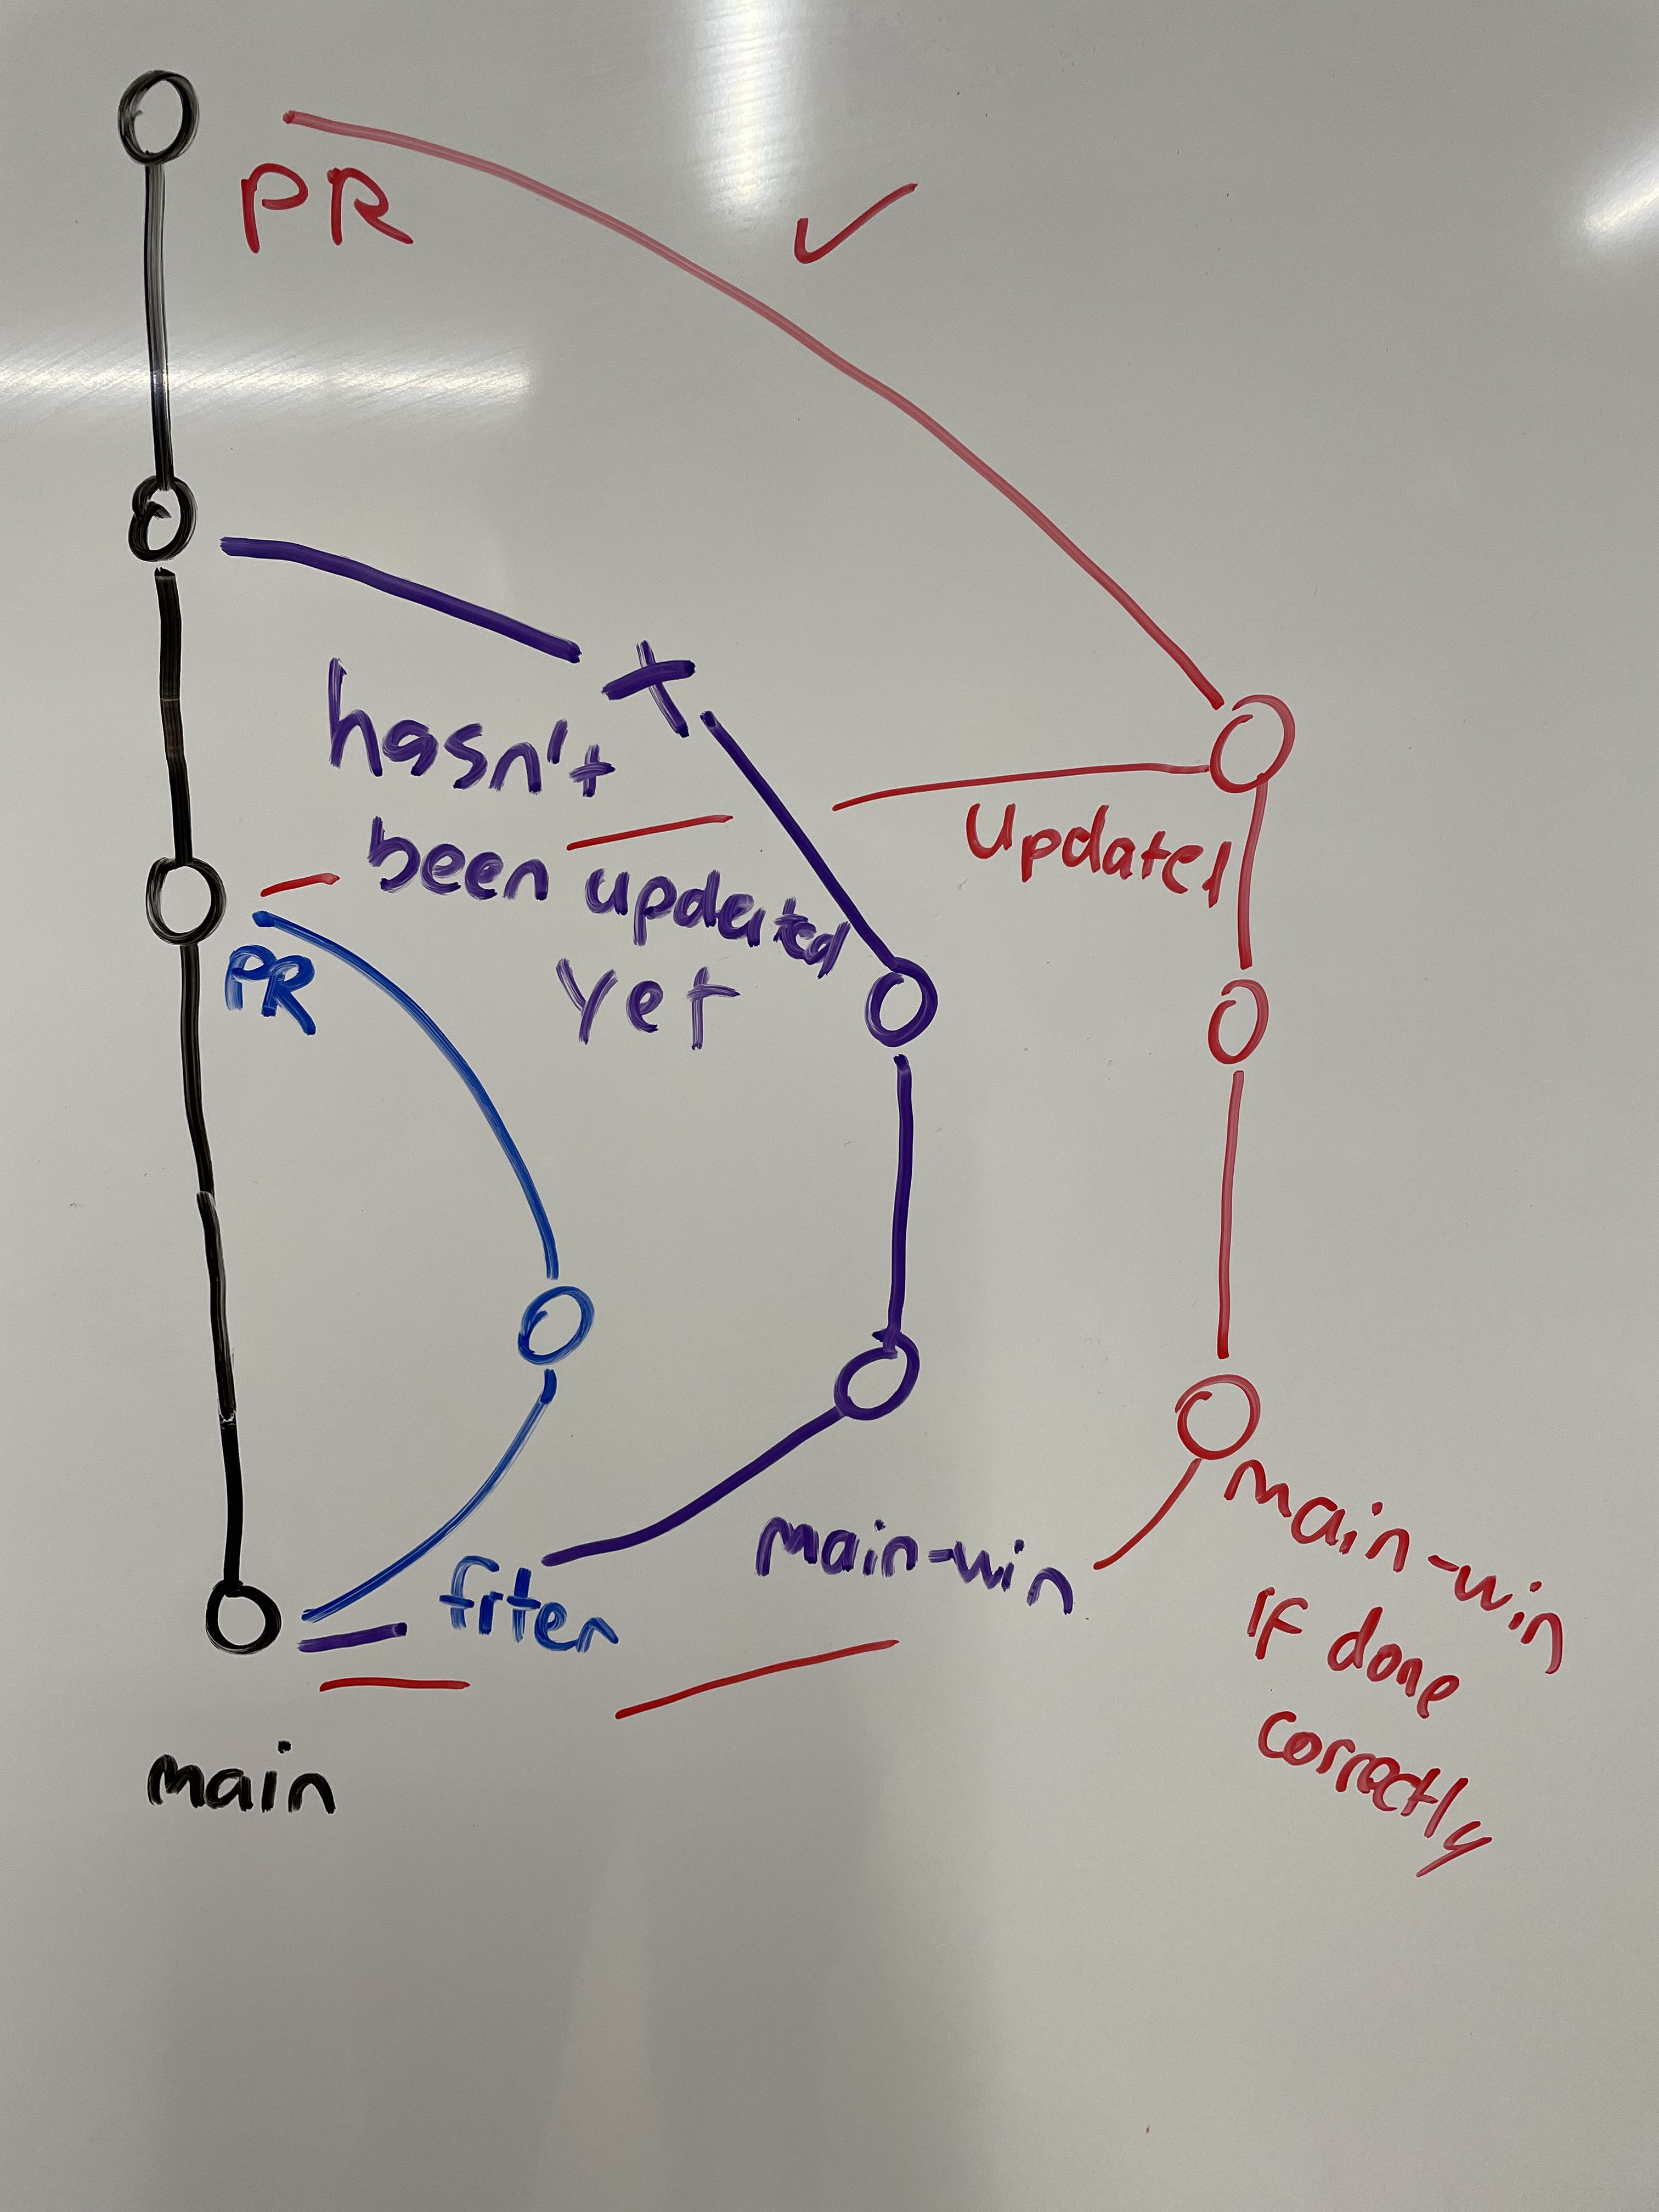 PR
hasn't
been updated
yet
Update!
PR
main-win
frten
main-win
if done
correctly
main